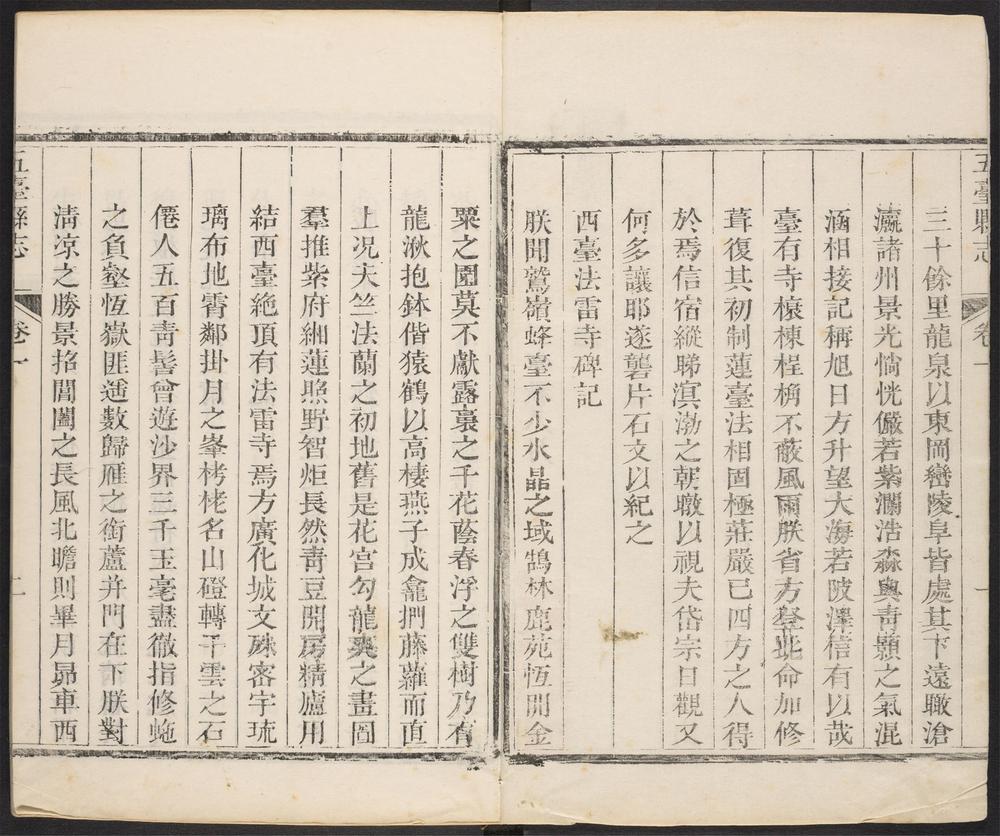 五臺縣志 卷一 一
三十餘里龍泉以東岡巒陵阜皆處其下遠瞰滄
瀛諸州景光惝恍儼若紫瀾浩淼與靑顥之氣混
涵相接記稱旭日方升望大海若陂澤信有以哉
臺有寺榱棟桯桷不蔽風雨朕省方登此命加修
葺復其初制蓮臺法相固極莊嚴已四方之人得
於焉信宿縱睇溟渤之朝暾以視夫岱宗日觀又
何多讓耶遂礱片石文以紀之
西臺法雷寺碑記
朕聞鷲嶺蜂臺不少水晶之域鵠林鹿苑恆開金
粟之園莫不獻露裛之千花蔭春浮之雙樹乃有
龍湫抱鉢偕猿鶴以高棲燕子成龕捫藤蘿而直
上况夫竺法蘭之初地舊是花宮勾龍爽之畫圖
羣推紫府緗蓮照野智炬長然靑豆開房精廬用
結西臺絶頂有法雷寺焉方廣化城文疎密宇琉
璃布地霄鄰掛月之峯栲栳名山磴轉千雲之石
僊人五百靑髻曾遊沙界三千玉毫盡徹指修虵
之負壑恆嶽匪遥數歸雁之銜蘆幷門在下朕對
淸凉之勝景挹閶闔之長風北瞻則畢月昴車西
五臺縣志 卷一 二